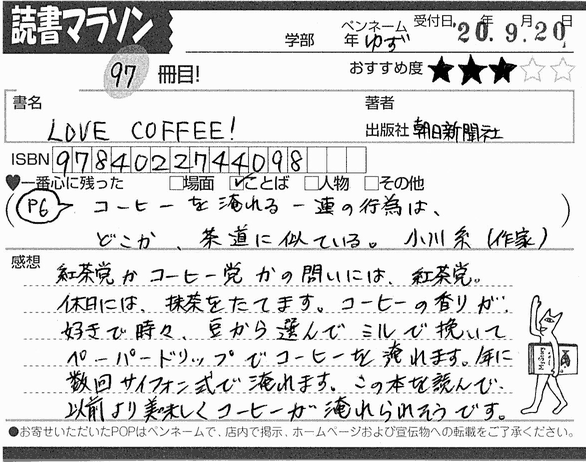 読書マラソン
学部 年 ペンネーム ゆず 受付日 '20年 9月 20日
97 冊目! おすすめ度 ★★★☆☆
書名 著者
LOVE COFFEE! 出版社 朝日新聞社
ISBN 9784022744098
♥一番心に残った □場面 ☑ことば □人物 □その他
(P6 コーヒーを淹れる一連の行為は、
どこか、茶道に似ている。 小川糸(作家))
感想
紅茶党かコーヒー党かの問いには、紅茶党。
休日には、抹茶をたてます。コーヒーの香りが
好きで時々、豆から選んでミルで挽いて
ペーパードリップでコーヒーを淹れます。年に
数回サイフォン式で淹れます。この本を読んで、
以前より美味しくコーヒーが淹れられそうです。
●お寄せいただいたPOPはペンネームで、店内で掲示、ホームページおよび宣伝物への転載をご了承ください。